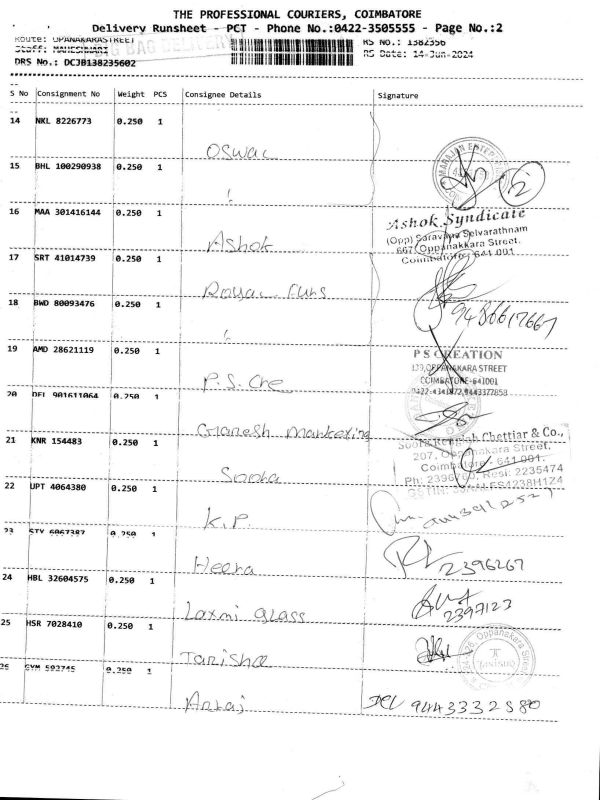 THE PROFESSIONAL COURIERS, COIMBATORE
Delivery Runsheet - PCT - Phone No.:0422-3505555 - Page No.:2
Route: OPANAKARASTREET
RS No.: 1382356
Staff: MAHESHWARI
BAG DELIVERY
RS Date: 14-Jun-2024
DRS No.: DCJB138235602
S No Consignment No Weight PCS Consignee Details Signature
14 NKL 8226773 0.250 1
Oswal
15 BHL 100290938 0.250 1
2
16 MAA 301416144 0.250 1
Ashok
Ashok Syndicate
(Opp) Saravana Selvarathnam
667, Oppanakkara Street,
Coimbatore - 641 001
17 SRT 41014739 0.250 1
Royal Funs
18 BWD 80093476 0.250 1
9486617667
19 AMD 28621119 0.250 1
P.S. Cre
P S CREATION
139, OPPANAKARA STREET
COIMBATORE-641001
0422-4341872, 9443377858
20 DEL 901611064 0.250 1
Ganesh marketing
21 KNR 154483 0.250 1
Sooha
Chettiar & Co.,
207, Oppanakara Street,
Coimbatore - 641 001.
Resi: 2235474
22 UPT 4064380 0.250 1
K.P.
23 STV 6067387 0.250 1
Heera
2396267
24 HBL 32604575 0.250 1
Laxmi glass
2397122
25 HSR 7028410 0.250 1
Tanishq
26 GYM 592745 0.250 1
Anraj
9443332580